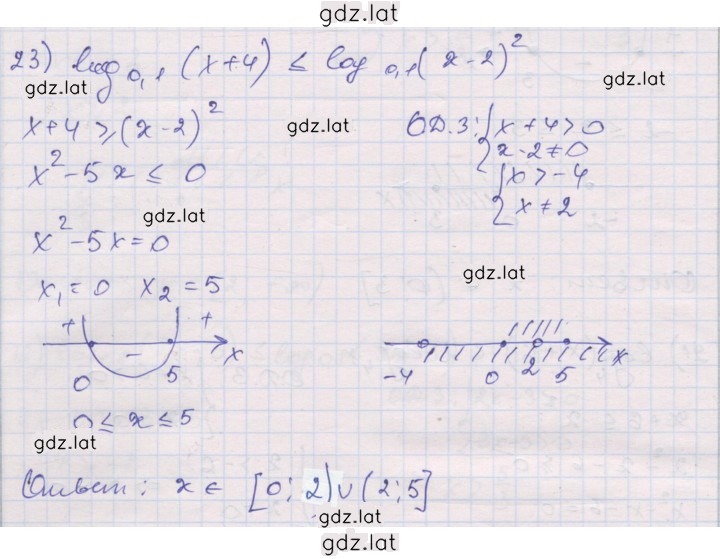 gdz.lat
23) log 0,1 (x+4) ≤ log 0,1 (x-2)²
gdz.lat
gdz.lat
x+4 ≥ (x-2)²
gdz.lat
ОДЗ: { x+4>0
x-2≠0
x² - 5x ≤ 0
{ x>-4
x≠2
gdz.lat
x² - 5x = 0
gdz.lat
x₁ = 0 x₂ = 5
+ - +
0 5 x
-4 0 2 5 x
0 ≤ x ≤ 5
gdz.lat
Ответ: x ∈ [0; 2) ∪ (2; 5]
gdz.lat
gdz.lat